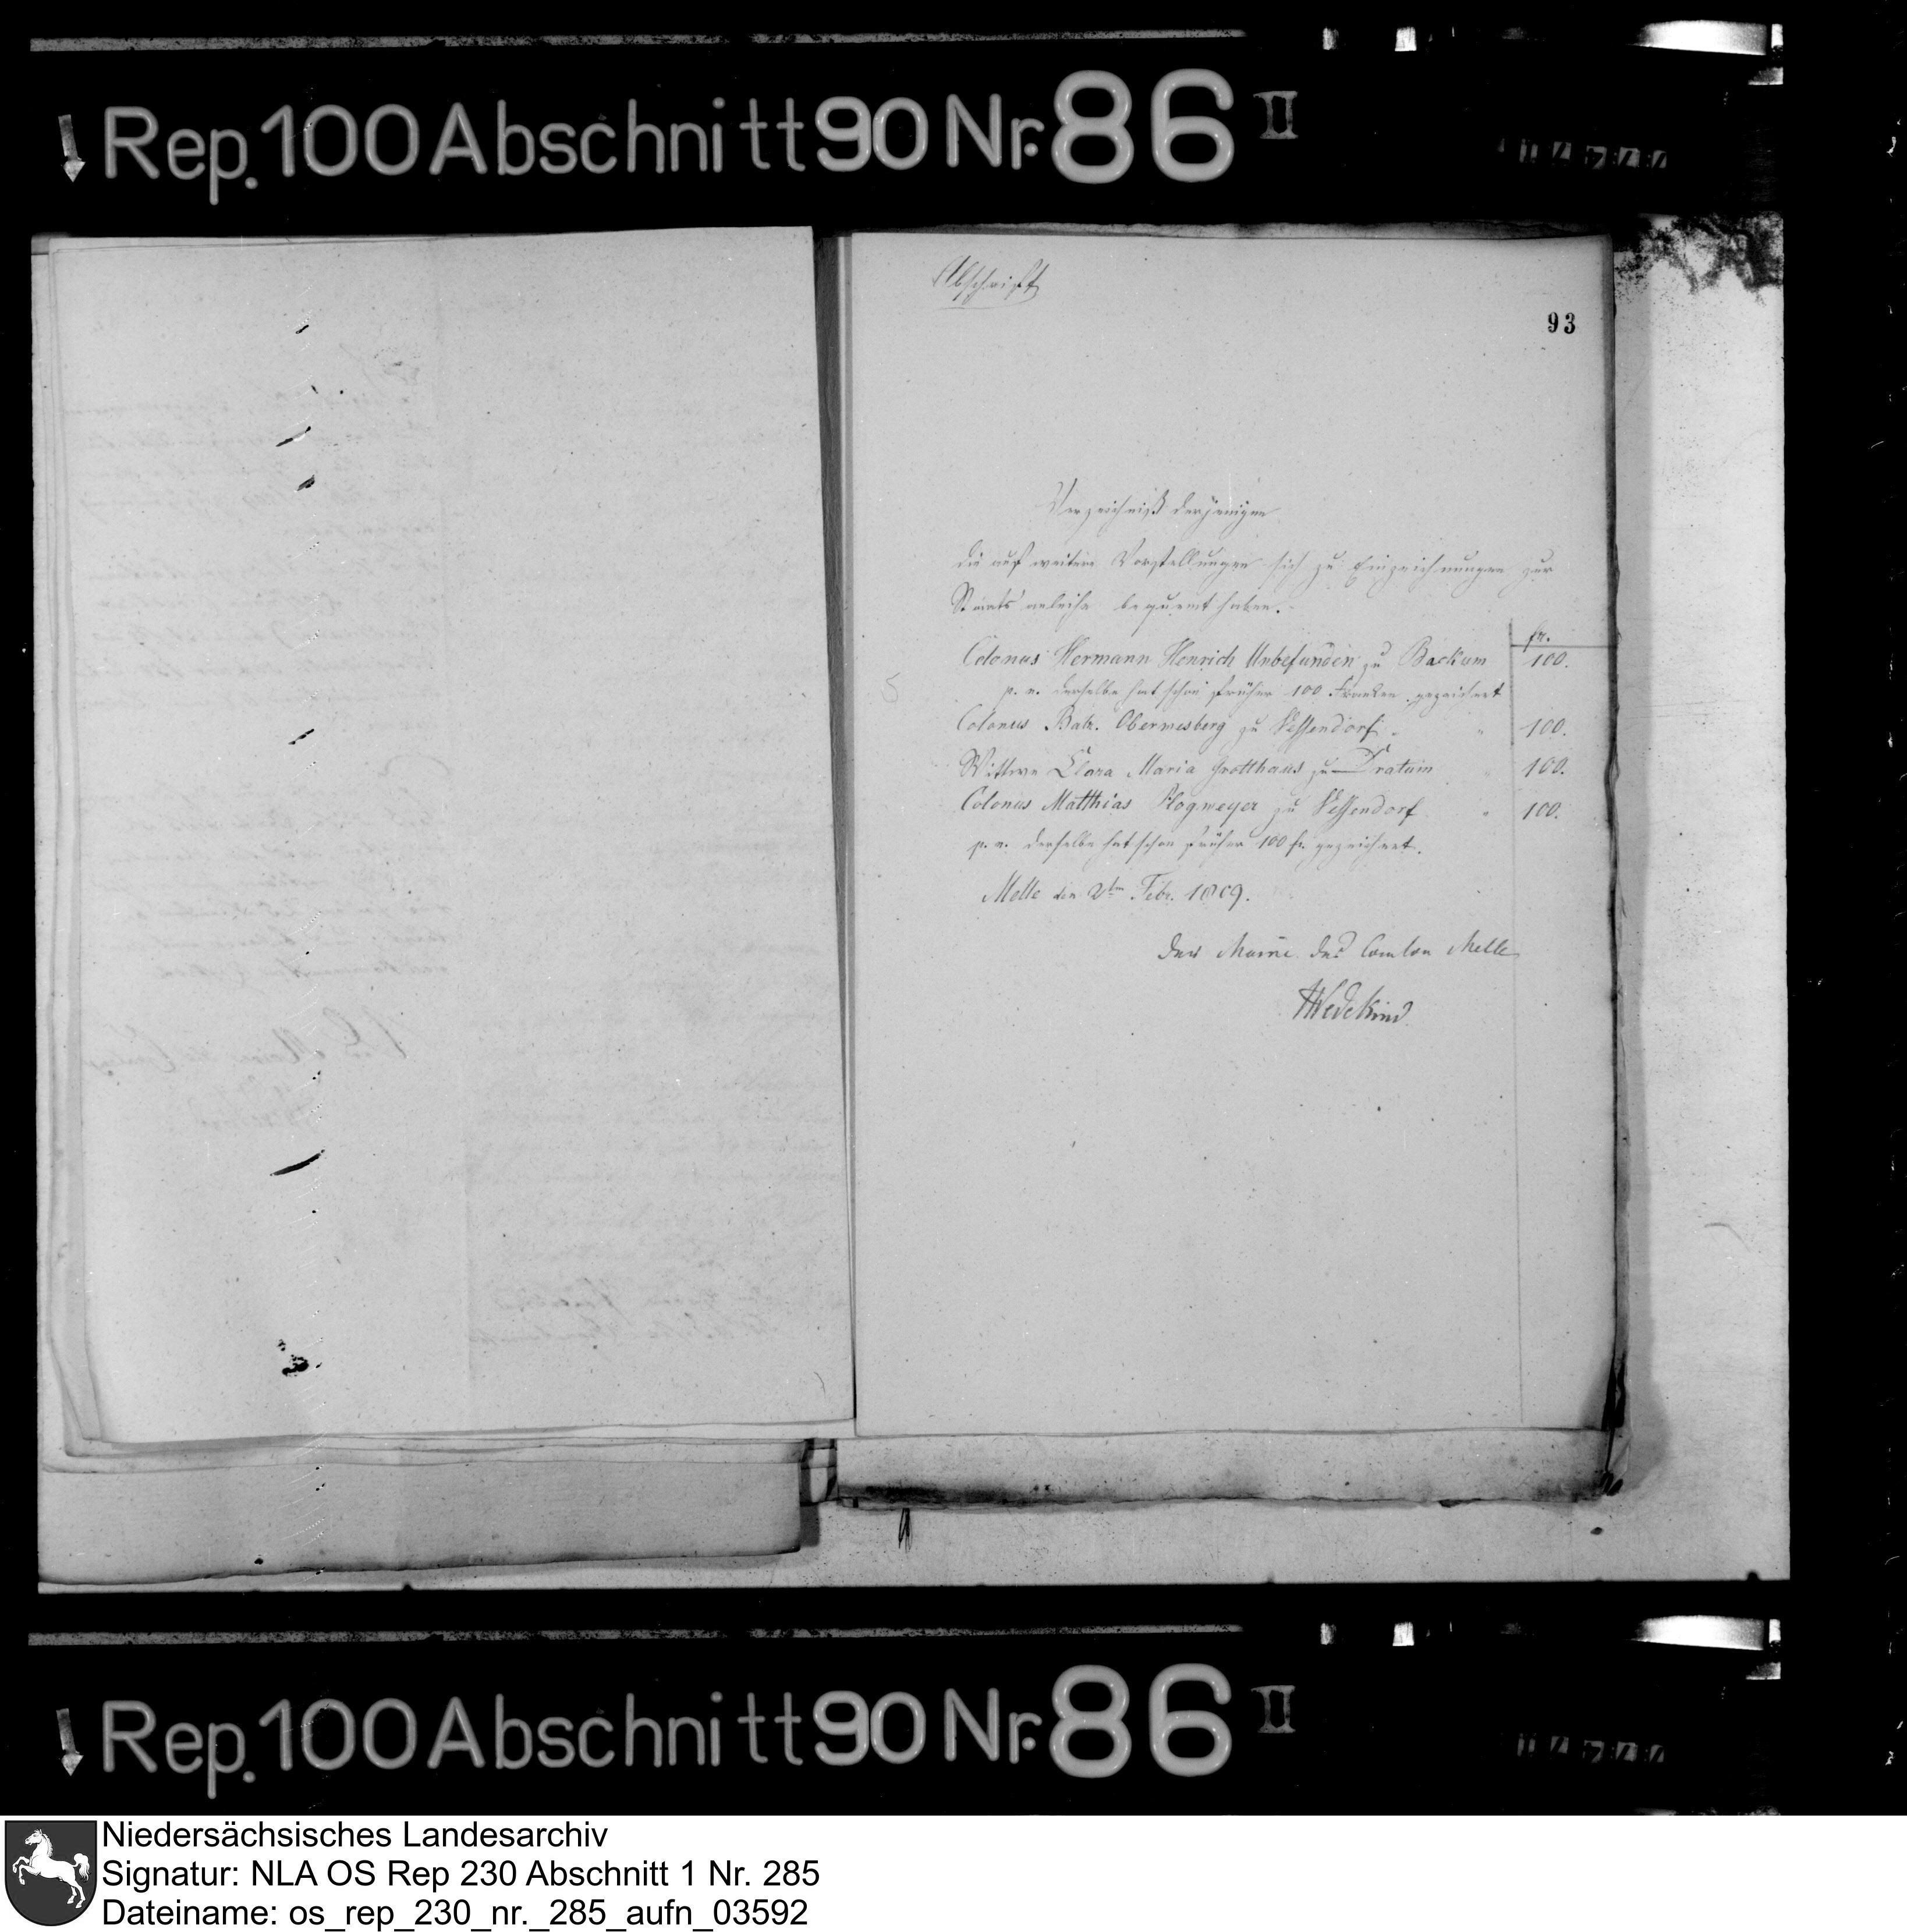 Rep. 100 Abschnitt 90 Nr. 86 II
Abschrift
93
Verzeichniß derjenigen
die auf weitere Vorstellungen sich zu Einzeichnungen zur
Staats anleihe bequemt haben.
fr.
Colonus Hermann Henrich Unbefunden zu Backum 100.
p. n. derselbe hat schon früher 100 Franken gezeichnet
Colonus Balz. Obermesberg zu Vessendorf " 100.
Wittwe Clara Maria Grotthaus zu Dratum " 100.
Colonus Matthias Plogmeyer zu Vessendorf " 100.
p. n. derselbe hat schon früher 100 fr. gezeichnet.
Melle den 2ten Febr. 1809.
Der Maire des Canton Melle
Wedekind
Rep. 100 Abschnitt 90 Nr. 86 II
Niedersächsisches Landesarchiv
Signatur: NLA OS Rep 230 Abschnitt 1 Nr. 285
Dateiname: os_rep_230_nr._285_aufn_03592